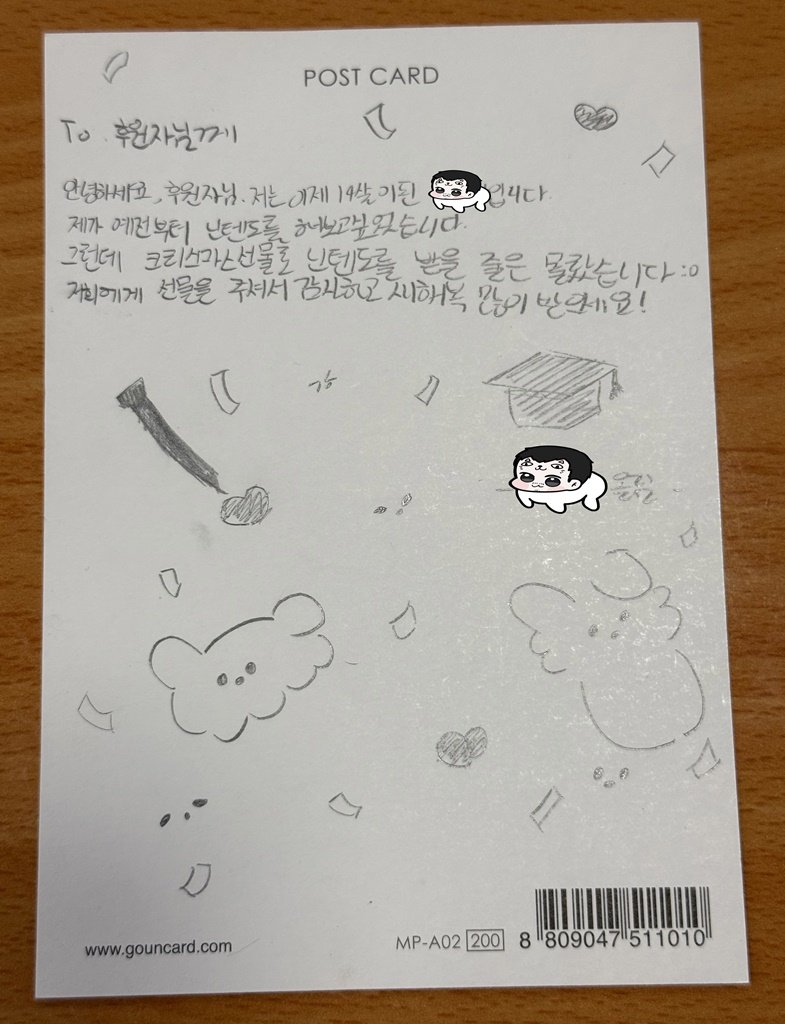 POST CARD
To. 후원자님께
안녕하세요, 후원자님. 저는 이제 14살이 된 입니다.
제가 예전부터 닌텐도를 해보고싶었습니다.
그런데 크리스마스선물로 닌텐도를 받을 줄은 몰랐습니다 :o
저희에게 선물을 주셔서 감사하고 새해복 많이 받으세요!
www.gouncard.com
MP-A02 200
8 809047 511010